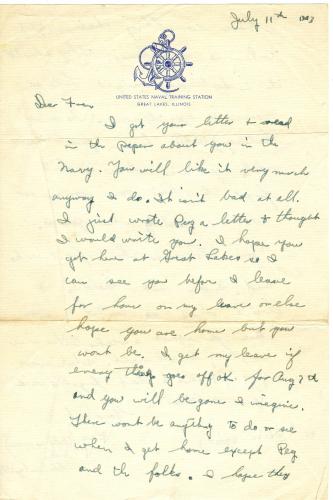 July 11th 1943
UNITED STATES NAVAL TRAINING STATION
GREAT LAKES, ILLINOIS
Dear Fran
I got your letter & read
in the paper about you in the
Navy. You will like it very much
anyway I do. It isn't bad at all.
I just wrote Peg a letter & thought
I would write you. I hope you
get here at Great Lakes so I
can see you before I leave
for home on my leave or else
hope you are home but you
wont be. I get my leave if
everything goes off ok. for Aug 7th
and you will be gone I imagine.
There wont be anything to do or see
when I get home except Peg
and the folks. I hope they